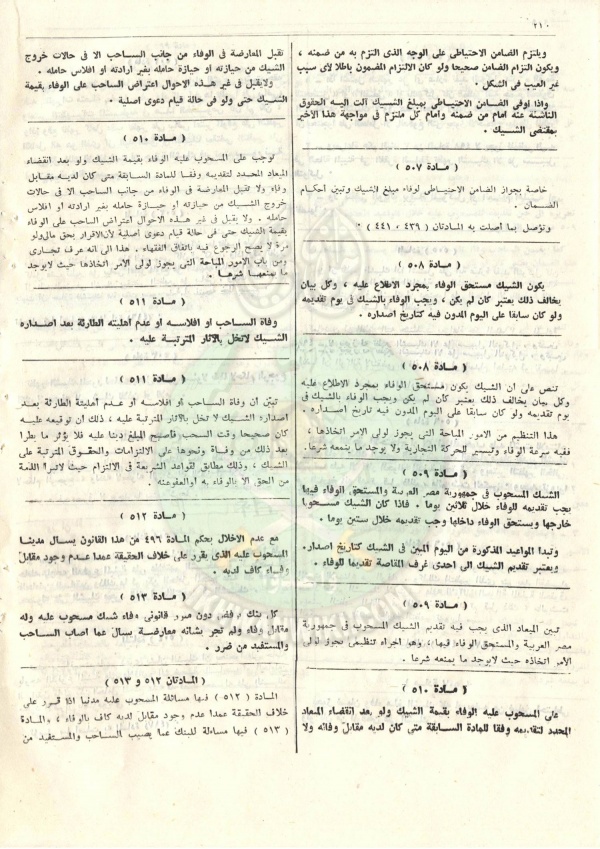 ٢١٠
ويلتزم الضامن الاحتياطى على الوجه الذى التزم به من ضمنه ،
ويكون التزام الضامن صحيحا ولو كان الالتزام المضمون باطلا لأى سبب
غير العيب فى الشكل .
واذا اوفى الضامن الاحتياطى بمبلغ الشيك آلت اليه الحقوق
الناشئة عنه امام من ضمنه وامام كل ملتزم فى مواجهة هذا الأخير
بمقتضى الشيك .
( مادة ٥٠٧ )
خاصة بجواز الضامن الاحتياطى لوفاء مبلغ الشيك وتبين أحكام
الضمان .
وتؤصل بما أصلت به المادتان ( ٤٣٩ ، ٤٤١ ) .
( مادة ٥٠٨ )
يكون الشيك مستحق الوفاء بمجرد الاطلاع عليه ، وكل بيان
يخالف ذلك يعتبر كان لم يكن ، ويجب الوفاء بالشيك فى يوم تقديمه
ولو كان سابقا على اليوم المدون فيه كتاريخ اصداره .
( مادة ٥٠٨ )
تنص على ان الشيك يكون مستحق الوفاء بمجرد الاطلاع عليه
وكل بيان يخالف ذلك يعتبر كان لم يكن ويجب الوفاء بالشيك فى
يوم تقديمه ولو كان سابقا على اليوم المدون فيه تاريخ اصداره .
هذا التنظيم من الامور المباحة التى يجوز لولى الامر اتخاذها ،
ففيه سرعة الوفاء وتيسير للحركة التجارية ولا يوجد ما يمنعه شرعا.
( مادة ٥٠٩ )
الشيك المسحوب فى جمهورية مصر العربية والمستحق الوفاء فيها
يجب تقديمه للوفاء خلال ثلاثين يوما . فاذا كان الشيك مسحوبا
خارجها ويستحق الوفاء داخلها وجب تقديمه خلال ستين يوما .
وتبدا المواعيد المذكورة من اليوم المبين فى الشيك كتاريخ اصداره.
ويعتبر تقديم الشيك الى احدى غرف المقاصة تقديما للوفاء .
( مادة ٥٠٩ )
تبين الميعاد الذى يجب فيه تقديم الشيك المسحوب فى جمهورية
مصر العربية والمستحق الوفاء فيها ، وهو اجراء تنظيمى يجوز لولى
الأمر اتخاذه حيث لايوجد ما يمنعه شرعا .
( مادة ٥١٠ )
على المسحوب عليه الوفاء بقيمة الشيك ولو بعد انقضاء الميعاد
المحدد لتقديمه وفقا للمادة السابقة متى كان لديه مقابل وفائه ولا
تقبل المعارضة فى الوفاء من جانب الساحب الا فى حالات خروج
الشيك من حيازته او حيازة حامله بغير ارادته او افلاس حامله .
ولايقبل فى غير هذه الاحوال اعتراض الساحب على الوفاء بقيمة
الشيك حتى ولو فى حالة قيام دعوى اصلية .
( مادة ٥١٠ )
توجب على المسحوب عليه الوفاء بقيمة الشيك ولو بعد انقضاء
الميعاد المحدد لتقديمه وفقا للمادة السابقة متى كان لديه مقابل
وفاء ولا تقبل المعارضة فى الوفاء من جانب الساحب الا فى حالات
خروج الشيك من حيازته او حيازة حامله بغير ارادته او افلاس
حامله . ولا يقبل فى غير هذه الاحوال اعتراض الساحب على الوفاء
بقيمة الشيك حتى فى حالة قيام دعوى اصلية لأن الاقرار بحق مالى ولو
مرة لا يصح الرجوع فيه باتفاق الفقهاء . هذا الى انه عرف تجارى
ومن باب الامور المباحة التى يجوز لولى الامر اتخاذها حيث لايوجد
ما يمنعها شرعا .
( مادة ٥١١ )
وفاة الساحب او افلاسه او عدم أهليته الطارئة بعد اصداره
الشيك لاتخل بالآثار المترتبة عليه .
( مادة ٥١١ )
تبين أن وفاة الساحب أو افلاسه أو عدم أهليته الطارئة بعد
اصداره الشيك لا تخل بالآثار المترتبة عليه ، ذلك ان توقيعه عليه
كان صحيحا وقت السحب فأصبح المبلغ دينا عليه فلا يؤثر ما يطرأ
بعد ذلك من وفاة ونحوها على الالتزامات والحقوق المترتبة على
الشيك ، وذلك مطابق لقواعد الشريعة فى الالتزام حيث لاتبرأ الذمة
من الحق الا بالوفاء به أو العفو عنه .
( مادة ٥١٢ )
مع عدم الاخلال بحكم المادة ٤٩٦ من هذا القانون يسال مدنيا
المسحوب عليه الذى يقرر على خلاف الحقيقة عمدا عدم وجود مقابل
وفاء كاف لديه .
( مادة ٥١٣ )
كل بنك رفض دون مبرر قانونى وفاء شيك مسحوب عليه وله
مقابل وفاء ولم تجر بشأنه معارضة يسال عما اصاب الساحب
والمستفيد من ضرر .
( المادتان ٥١٢ و ٥١٣ )
المادة ( ٥١٢ ) فيها مسائلة المسحوب عليه مدنيا اذا قرر على
خلاف الحقيقة عمدا عدم وجود مقابل لديه كاف بالوفاء ، والمادة
( ٥١٣ ) فيها مساءلة للبنك عما يصيب الساحب والمستفيد من